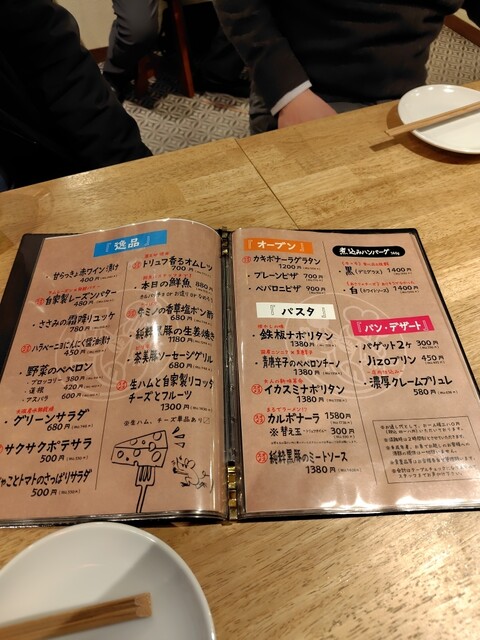 『逸品』
・甘らっきょ赤ワイン漬け
400円
自家製レーズンバター
480円
・ささみの霜降りユッケ
780円
ハラペーニョにんにく醤油漬け
450円
・野菜のペペロン
・ブロッコリー 380円
・蓮根 420円
・アスパラ 600円
・グリーンサラダ
680円
サクサクポテサラ
500円
じゃことトマトのさっぱりサラダ
500円
トリュフ香るオムレツ
700円
・本日の鮮魚 880円
680円
・純粋黒豚の生姜焼き
1180円
・茶美豚ソーセージグリル
680円
・生ハムと自家製リコッタ
チーズとフルーツ
1300円
『オーブン』
カキボナーラグラタン
1200円
・プレーンピザ 700円
・ペパロニピザ 900円
『パスタ』
・鉄板ナポリタン
1380円
・青唐辛子のペペロンチーノ
1380円
・イカスミナポリタン
1380円
・カルボナーラ 1580円
※替え玉 300円
・純粋黒豚のミートソース
1380円
煮込みハンバーグ
・黒(デミグラス) 1400円
・白(ホワイトソース) 1400円
『パン・デザート』
・バゲット2ヶ 300円
・Jizoプリン 450円
・濃厚クレームブリュレ
580円